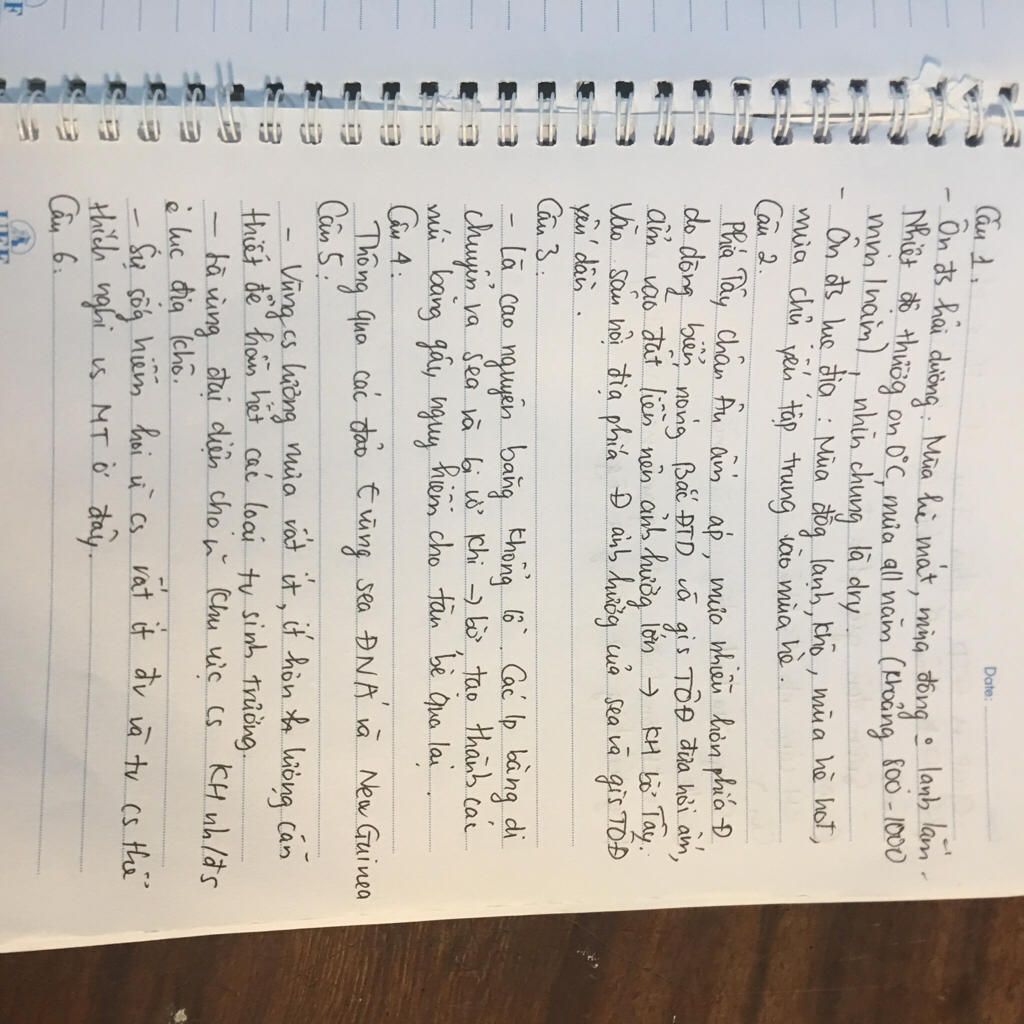 Date:
Câu 1:
- Ôn đs hải dương: Mùa hè mát, mùa đông o lạnh lắm.
Nhiệt độ thường on 0°C, mưa all năm (khoảng 800-1000
mm/năm), nhìn chung là dry
- Ôn đs lục địa: Mùa đông lạnh, khô, mùa hè hot,
mưa chủ yếu tập trung vào mùa hè.
Câu 2.
Phía Tây châu Âu ấm áp, mưa nhiều hơn phía Đ
do dòng biển nóng Bắc ĐTD và gió TÔĐ đưa hơi ấm,
ẩm vào đất liền nên ảnh hưởng lớn → KH bờ Tây.
Vào sâu nội địa phía Đ ảnh hưởng của sea và gió TÔĐ
yếu dần.
Câu 3:
- Là cao nguyên băng khổng lồ. Các lp băng di
chuyển ra sea và bị vỡ khi → bờ, tạo thành các
núi băng gây nguy hiểm cho tàu bè qua lại.
Câu 4:
Thông qua các đảo vùng sea ĐNÁ và New Guinea
Câu 5:
- Vùng cs lượng mưa rất ít, ít hơn lượng cần
thiết để hầu hết các loài tv sinh trưởng.
- Là vùng đại diện cho khu vực cs KH nh/đs
lục địa khô.
- Sự sống hiếm hoi vì cs rất ít đv và tv cs thể
thích nghi vs MT ở đây.
Câu 6: